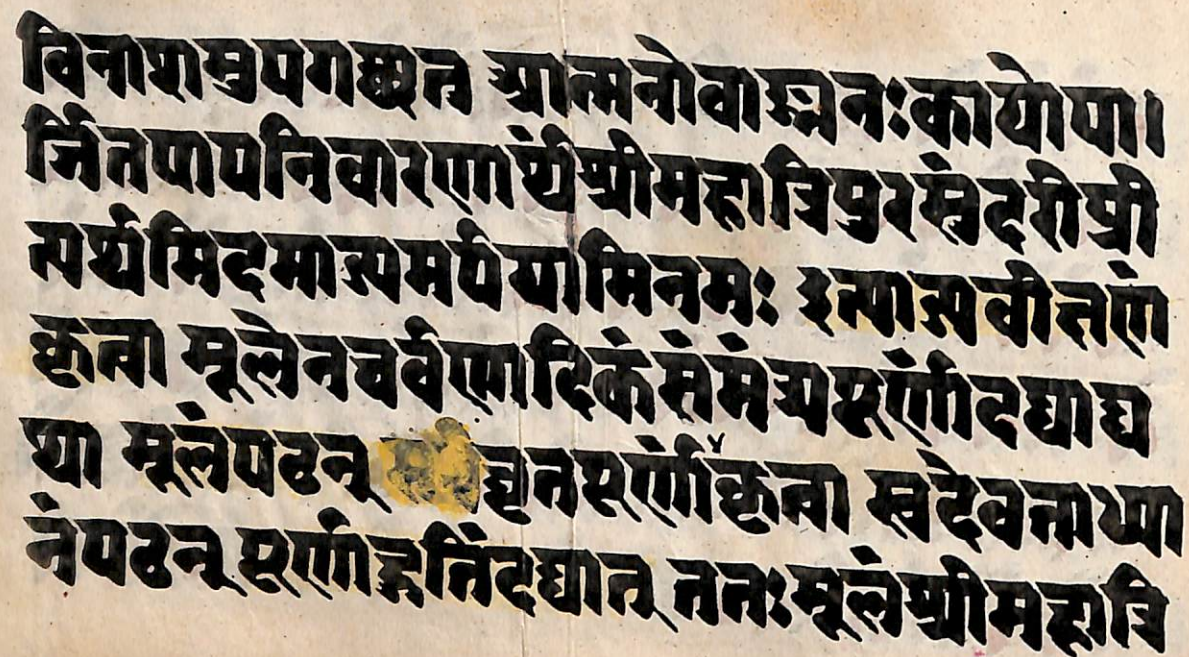 विनाशमुपगच्छत आत्मनोवाङ्मनःकायोपा।
र्जितपापनिवारणार्थंश्रीमहात्रिपुरसुंदरीप्री
त्यर्थमिदमाज्यमर्पयामिनमः इत्याज्यवीक्षणं
कृत्वा मूलेनचर्वणादिकंसंमंत्र्यपूर्णांदद्याद्य
था मूलंपठन् घृतपूर्णांकृत्वा स्वदेवताध्या
नंपठन् पूर्णाहुतिंदद्यात् ततःमूलंश्रीमहात्रि